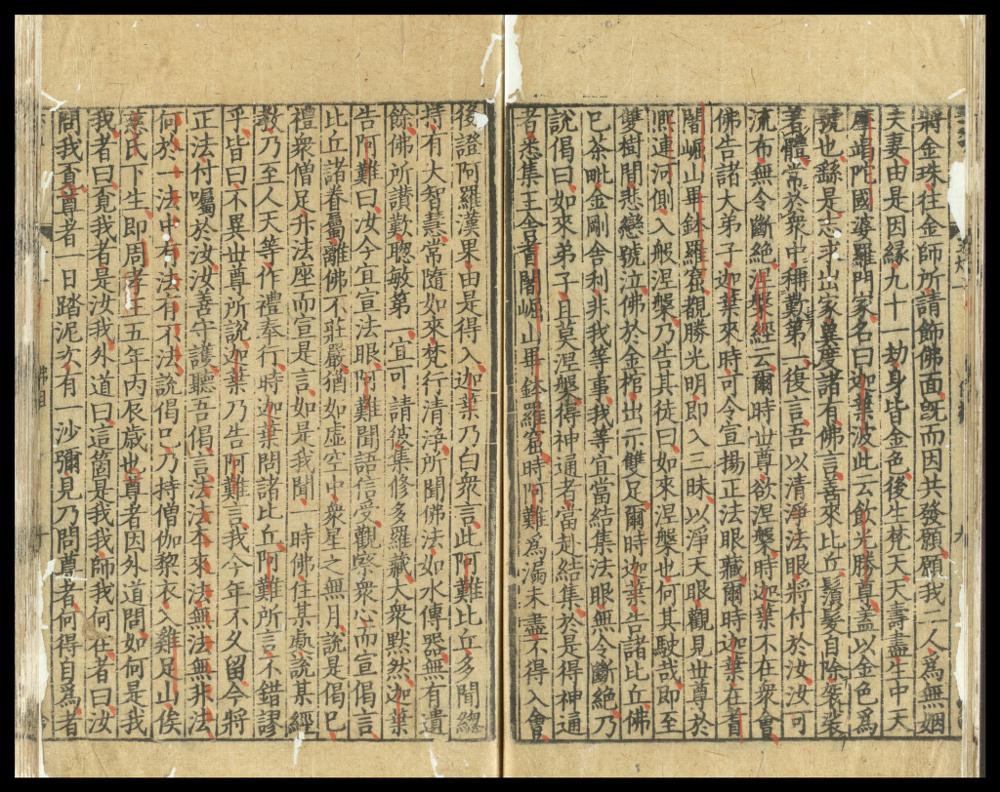 將金珠往金師所請飾佛面既而因共發願願我二人爲無姻
夫妻由是因緣九十一劫身皆金色後生梵天天壽盡生中天
摩竭陀國婆羅門家名曰迦葉波此云飲光勝尊盖以金色爲
號也繇是志求出家冀度諸有佛言善來比丘鬚髮自除袈裟
著體常於衆中稱歎第一復言吾以清淨法眼將付於汝汝可
流布無令斷絶涅槃經云爾時世尊欲涅槃時迦葉不在衆會
佛告諸大弟子迦葉來時可令宣揚正法眼藏爾時迦葉在耆
闍崛山畢鉢羅窟覩勝光明即入三昧以淨天眼觀見世尊於
熈連河側入般涅槃乃告其徒曰如來涅槃也何其駛哉即至
雙樹間悲戀號泣佛於金棺出示雙足爾時迦葉告諸比丘佛
已茶毗金剛舍利非我等事我等宜當結集法眼無令斷絶乃
說偈曰如來弟子且莫涅槃得神通者當赴結集於是得神通
者悉集王舍耆闍崛山畢鉢羅窟時阿難爲漏未盡不得入會
後證阿羅漢果由是得入迦葉乃白衆言此阿難比丘多聞緫
持有大智慧常隨如來梵行清淨所聞佛法如水傳器無有遺
餘佛所讃歎聦敏第一宜可請彼集修多羅藏大衆默然迦葉
告阿難曰汝今宜宣法眼阿難聞語信受觀察衆心而宣偈言
比丘諸眷屬離佛不莊嚴猶如虛空中衆星之無月說是偈已
禮衆僧足升法座而宣是言如是我聞一時佛住某處說某經
教乃至人天等作禮奉行時迦葉問諸比丘阿難所言不錯謬
乎皆曰不異世尊所說迦葉乃告阿難言我今年不久留今將
正法付囑於汝汝善守護聽吾偈言法法本來法無法無非法
何於一法中有法有不法說偈已乃持僧伽棃衣入雞足山俟
慈氏下生即周孝王五年丙辰歲也尊者因外道問如何是我
我者曰覓我者是汝我外道曰這箇是我我師我何在者曰汝
問我覓尊者一日踏泥次有一沙彌見乃問尊者何得自爲者